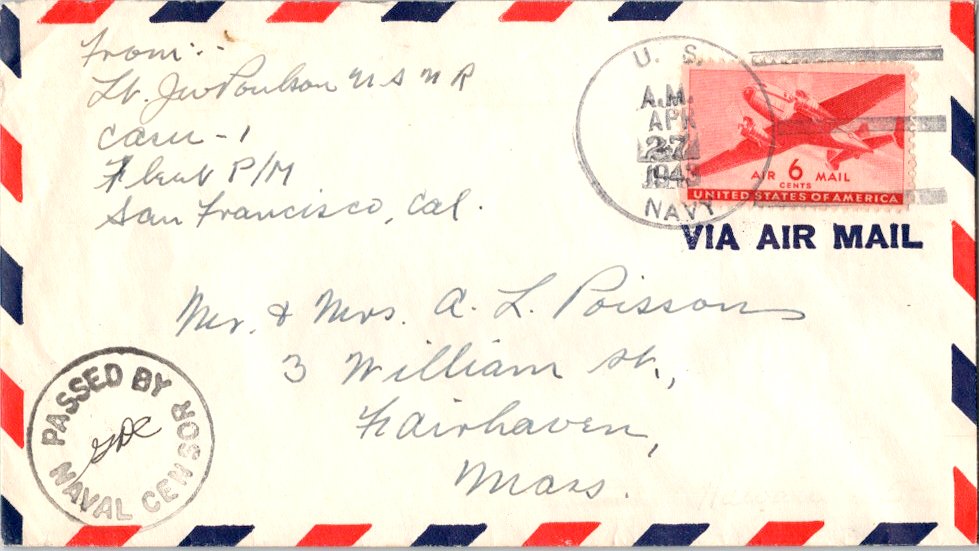 From:
Lt. Jw Poulson U S N R
Casu - 1
Fleet P/M
San Francisco, Cal.
U. S.
A.M.
APR
27
1943
NAVY
AIR 6 MAIL
CENTS
UNITED STATES OF AMERICA
VIA AIR MAIL
Mr. & Mrs. A. L. Poisson
3 William St.,
Fairhaven,
Mass.
PASSED BY
NAVAL CENSOR